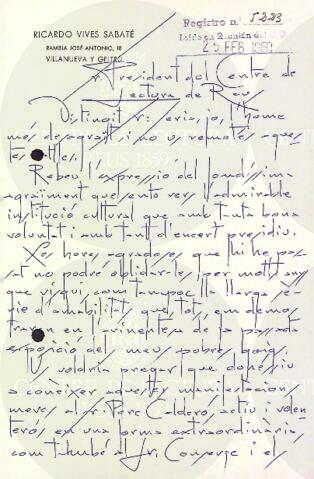 RICARDO VIVES SABATÉ
RAMBLA JOSÉ ANTONIO, 18
VILLANUEVA Y GELTRÚ
Registro n.º 5223
Leído en Reunión del C.D.
25 FEB 1960
Sr. President del Centre de
Lectura de Reus
Distingit Sr: seria, jo, l'home
més desagrait si no us remetés aques-
tes ratlles.
Rebeu l'expressió del fondíssim
agraiment que sento vers l'admirable
institució cultural que amb tanta bona
voluntat i amb tant d'encert presidiu.
Les hores agradoses que hi he pas-
sat no podré oblidar-les per molts anys
que visqui, com tampoc la llarga sè-
rie d'amabilitats que tots, em demos-
traren en l'avinentesa de la passada
exposició dels meus pobres goigs.
Us voldria pregar que donéssiu
a conèixer aquestes manifestacions
meves al Sr. Pere Calderó, actiu i volen-
terós en una forma extraordinària,
com també al Sr. Conserge i el